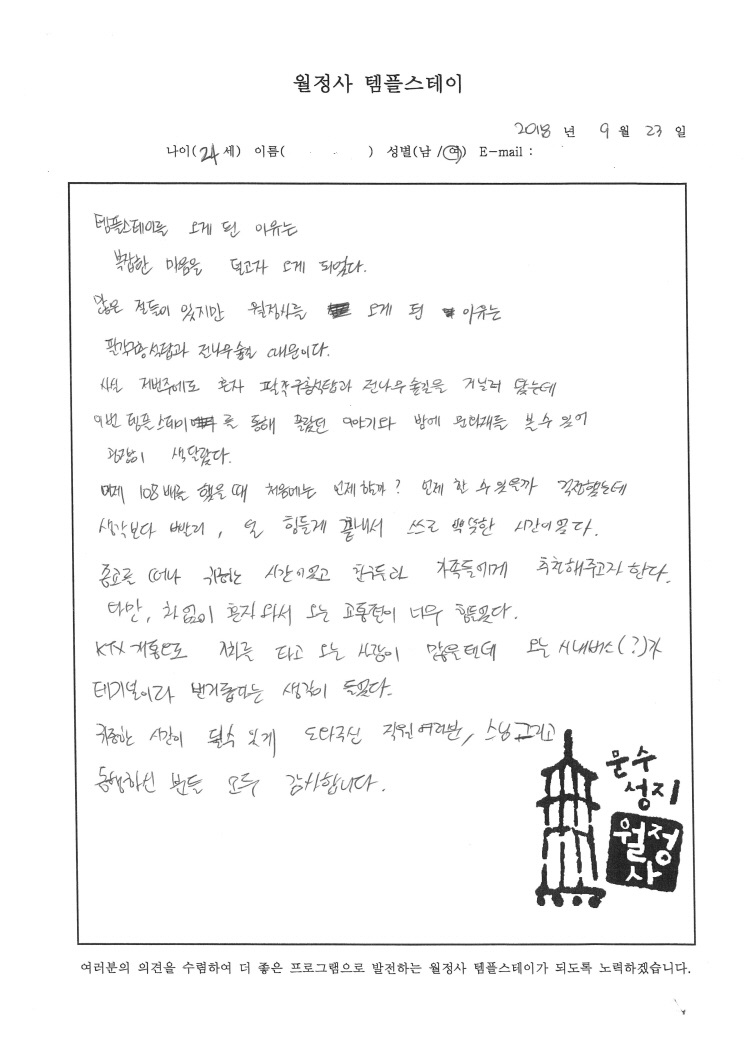 월정사 템플스테이
2018 년 9 월 23 일
나이( 24 세) 이름( ) 성별(남 / 여) E-mail :
템플스테이를 오게 된 이유는
복잡한 마음을 덜고자 오게 되었다.
많은 절들이 있지만 월정사를 오게 된 이유는
팔각구층석탑과 전나무숲길 때문이다.
사실 저번주에도 혼자 팔각구층석탑과 전나무숲길을 거닐러 왔는데
이번 템플스테이를 통해 몰랐던 이야기와 밤에 문화재를 볼 수 있어
굉장히 색달랐다.
어제 108배를 했을 때 처음에는 언제 할까? 언제 할 수 있을까 걱정했는데
생각보다 빨리, 덜 힘들게 끝내서 스스로 뿌듯한 시간이었다.
종교를 떠나 귀중한 시간이었고 친구들과 가족들에게 추천해주고자 한다.
다만, 차 없이 혼자 와서 오는 교통편이 너무 힘들었다.
KTX 개통으로 기차를 타고 오는 사람이 많을텐데 오는 시내버스(?)가
번거롭다는 생각이 들었다.
귀중한 시간이 될 수 있게 도와주신 직원 여러분, 스님 그리고
동행하신 분들 모두 감사합니다.
문수
성지
월정
사
여러분의 의견을 수렴하여 더 좋은 프로그램으로 발전하는 월정사 템플스테이가 되도록 노력하겠습니다.